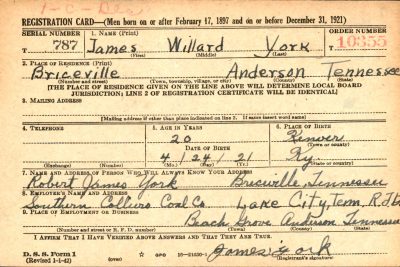 REGISTRATION CARD—(Men born on or after February 17, 1897 and on or before December 31, 1921)
SERIAL NUMBER 1. NAME (Print) ORDER NUMBER
787 James Willard York 10355
(First) (Middle) (Last)
2. PLACE OF RESIDENCE (Print)
Briceville Anderson Tennessee
(Number and street) (Town, township, village, or city) (County) (State)
[THE PLACE OF RESIDENCE GIVEN ON THE LINE ABOVE WILL DETERMINE LOCAL BOARD
JURISDICTION; LINE 2 OF REGISTRATION CERTIFICATE WILL BE IDENTICAL]
3. MAILING ADDRESS
[Mailing address if other than place indicated on line 2. If same insert word same]
4. TELEPHONE 5. AGE IN YEARS 6. PLACE OF BIRTH
20
DATE OF BIRTH (Town or county)
4 24 21 Ky.
(Exchange) (Number) (Mo.) (Day) (Yr.) (State or country)
7. NAME AND ADDRESS OF PERSON WHO WILL ALWAYS KNOW YOUR ADDRESS
Robert James York Briceville, Tennessee
8. EMPLOYER'S NAME AND ADDRESS
Southern Colliero Coal Co. Lake City, Tenn, R.d.1
9. PLACE OF EMPLOYMENT OR BUSINESS
Beach Grove Anderson Tennessee
(Number and street or R. F. D. number) (Town) (County) (State)
I AFFIRM THAT I HAVE VERIFIED ABOVE ANSWERS AND THAT THEY ARE TRUE.
D. S. S. Form 1 James York
(Revised 1-1-42) (over) 16—21630-1 (Registrant's signature)